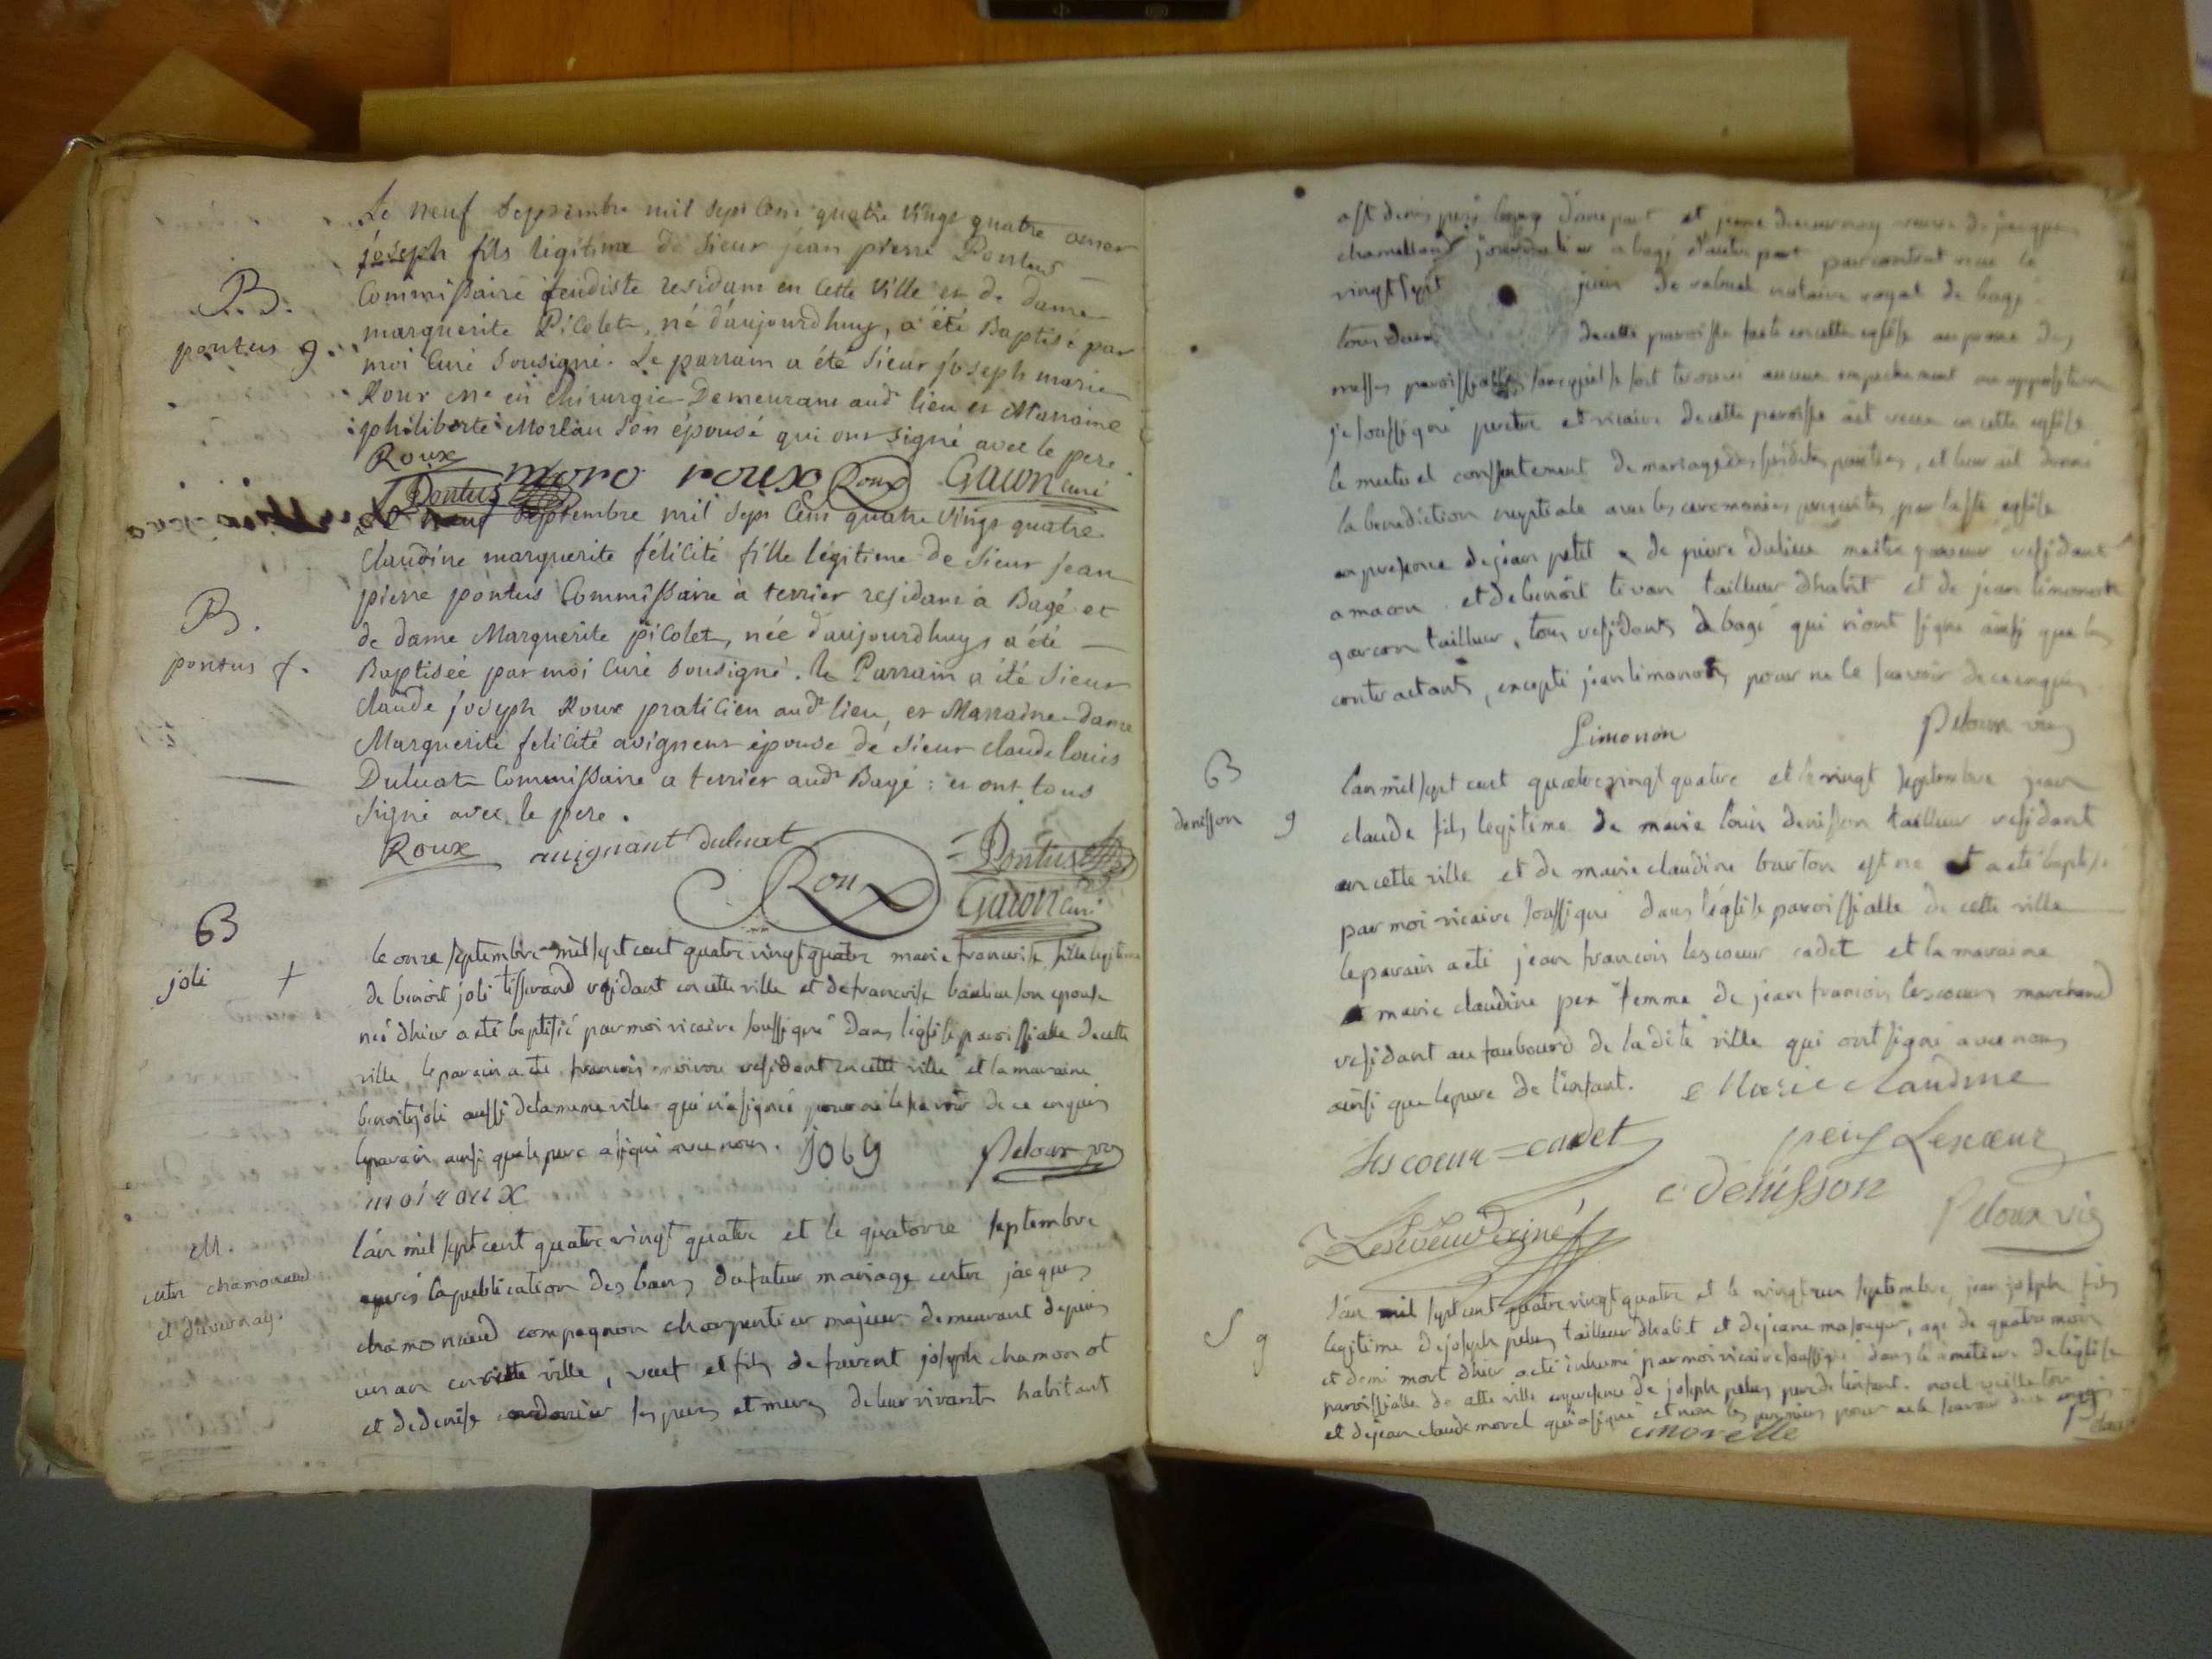 Le neuf Septembre mil sept Cent quatre vingt quatre
joseph fils légitime de Sieur jean pierre Pontus
B.
Commissaire feudiste residant en Cette Ville et de dame
pontus g.
marguerite Picolet, né d'aujourdhuy, a été Baptisé par
moi Curé Sousigné. Le parrain a été Sieur joseph marie
Roux me en chirurgie Demeurant audt lieu et Marraine
philiberte Moreau Son épouse qui ont signé avec le pere.
Roux moro roux Roux Gacon curé
Pontus
Le neuf Septembre mil Sept Cent quatre Vingt quatre
Claudine marguerite félicité fille légitime de Sieur jean
pierre pontus Commissaire à terrier residant à Bagé et
B.
de dame Marguerite picolet, née d'aujourdhuy a été
pontus f.
Baptisée par moi Curé Sousigné. le Parrain a été Sieur
Claude joseph Roux praticien audt lieu, et Marraine dame
Marguerite felicité avignent épouse de Sieur claude louis
Duluat Commissaire a terrier audt Bagé : et ont tous
signé avec le pere.
Roux avignant duluat Pontus
Roux Gacon curé
B
joli f
le onze septembre mil sept cent quatre vingt quatre marie francoise fille legitime
de benoit joli tisserand residant en cette ville et de francoise son epouse
neé d'hier a eté baptisé par moi vicaire soussigné dans l'eglise paroissialle de cette
ville le parain a eté francois residant en cette ville et la maraine
benoite joli aussi de la meme ville qui n'a signé pour ne le savoir de ce enquis
le parain ainsi que le pere a signé avec nous. joly Peloux vic
moiroux
M.
entre chamonaud
et duvernay.
l'an mil sept cent quatre vingt quatre et le quatorze septembre
après la publication des bans du futur mariage entre jacques
chamonaud compagnon charpentier majeur demeurant depuis
un an en cette ville, veuf et fils de favent joseph chamonot
et de denise ses pere et mere de leur vivant habitant
d'une part et jeane duvernay veuve de jacques
journalier a bagé d'autre part par contrat recu le
vingt sept juin de valuel notaire royal de bagé
tous deux de cette paroisse faite en cette eglise au prone des
messes paroissialles sans qu'il se soit trouvé aucun empechement ou opposition
je soussigné pretre et vicaire de cette paroisse ait receu en cette eglise
le mutuel consentement de mariage des susdites parties, et leur ait donné
la benediction nuptiale avec les ceremonies prescrites par la ste eglise
en presence de jean petit de pierre dulieu maitre residant
a macon et de benoit tevan tailleur d'habit et de jean limonon
garcon tailleur, tous residants a bagé qui n'ont signé ainsi que les
contractants, excepté jean limonon pour ne le savoir de ce enquis
Limonon Peloux vic
B
denisson g
l'an mil sept cent quatre vingt quatre et le vingt septembre jean
claude fils legitime de marie louis denisson tailleur residant
en cette ville et de marie claudine burton est né et a eté baptisé
par moi vicaire soussigné dans l'église paroissialle de cette ville
le parain a eté jean francois lescoeur cadet et la maraine
marie claudine femme de jean francois lescoeur marchand
residant au faubourd de la dite ville qui ont signé avec nous
ainsi que le pere de l'enfant. Marie claudine
lescoeur = cadet Lescoeur
denisson
Peloux vic
S g
l'an mil sept cent quatre vingt quatre et le vingt un septembre, jean joseph fils
legitime de joseph tailleur d'habit et de jeane, agé de quatre mois
et demi mort d'hier a eté inhumé par moi vicaire soussigné dans le cimetiere de l'eglise
paroissialle de cette ville en presence de joseph pere de l'enfant. noel
et de jean claude morel qui a signé et non les premiers pour ne le savoir de ce enquis
morelle